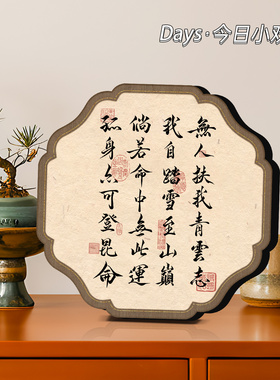 Days·今日小
無人扶我青雲志
我自踏雪至山巔
倘若命中無此運
孤身亦可登昆侖